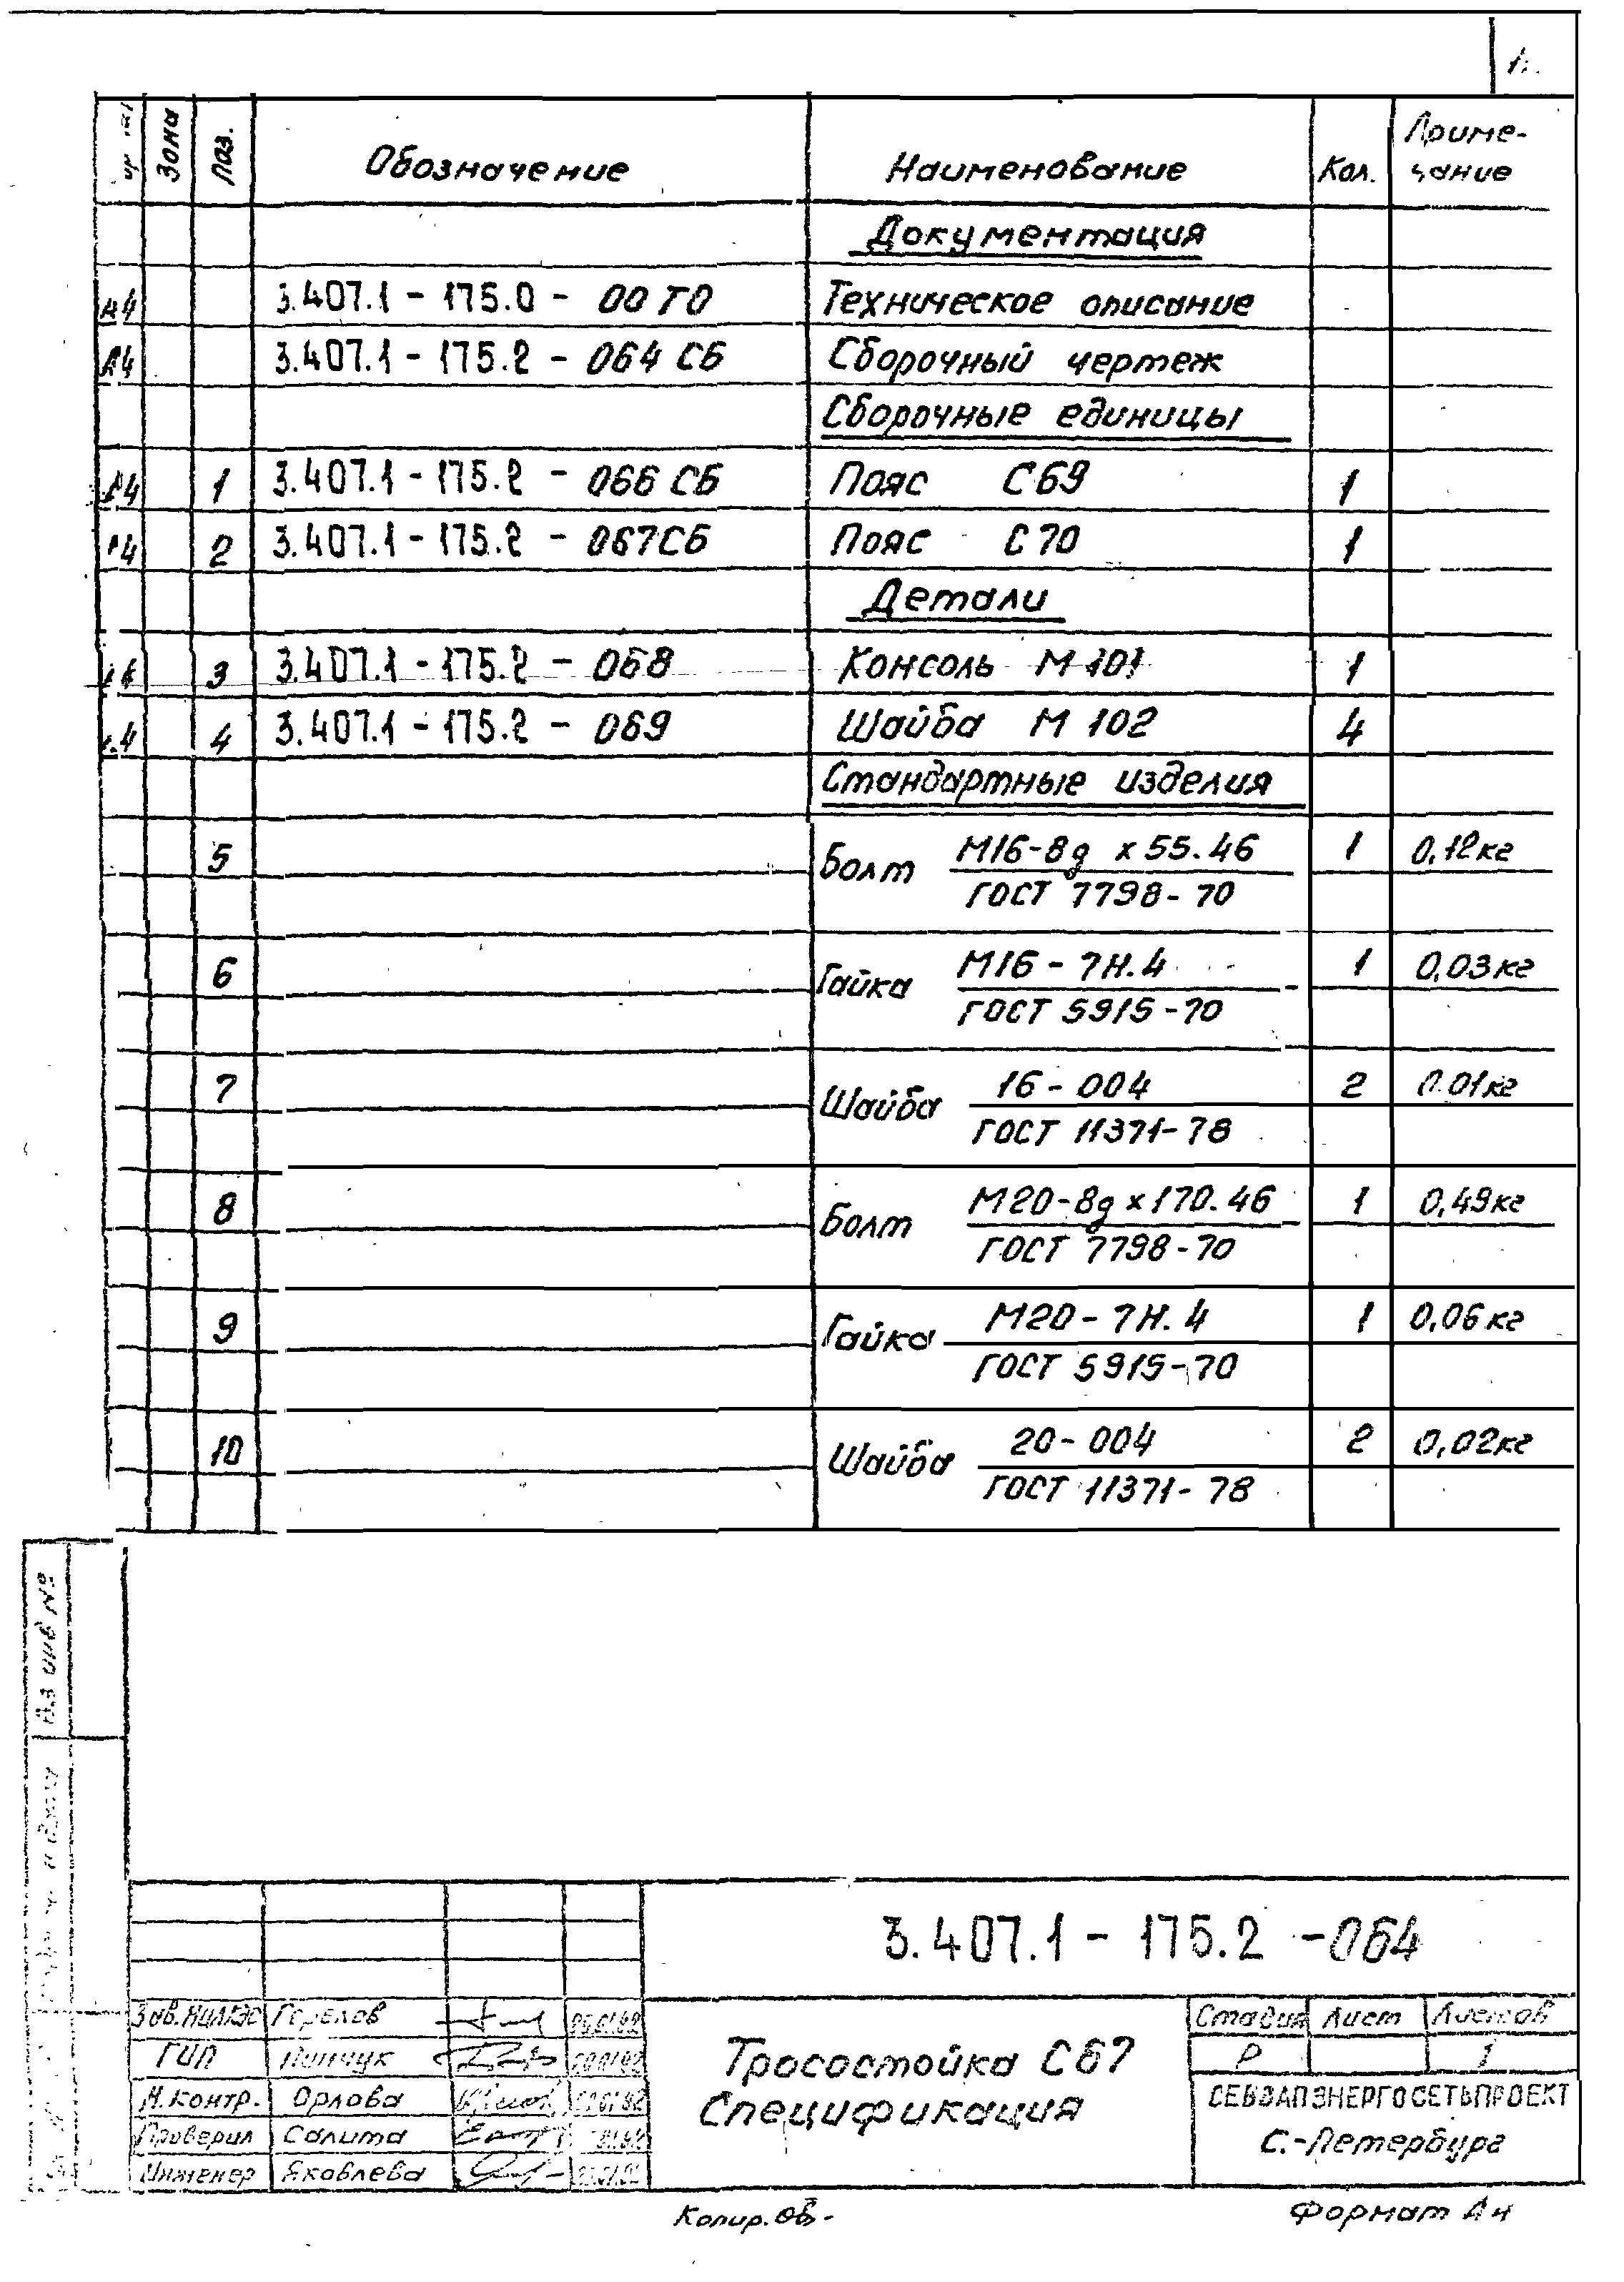 Зона
Поз.
Обозначение
Наименование
Кол.
Приме-
чание
Документация
А4 3.407.1 - 175.0 - 00 ТО Техническое описание
А4 3.407.1 - 175.2 - 064 СБ Сборочный чертеж
Сборочные единицы
А4 1 3.407.1 - 175.2 - 066 СБ Пояс С69 1
А4 2 3.407.1 - 175.2 - 067СБ Пояс С70 1
Детали
3 3.407.1 - 175.2 - 068 Консоль М 101 1
4 3.407.1 - 175.2 - 069 Шайба М 102 4
Стандартные изделия
5 Болт М16-8g х 55.46 1 0,12кг
ГОСТ 7798-70
6 Гайка М16 - 7Н.4 1 0,03кг
ГОСТ 5915-70
7 Шайба 16 - 004 2 0.01кг
ГОСТ 11371-78
8 Болт М20-8g х 170.46 1 0,49кг
ГОСТ 7798-70
9 Гайка М20 - 7Н.4 1 0,06кг
ГОСТ 5915-70
10 Шайба 20 - 004 2 0,02кг
ГОСТ 11371-78
Вз инв №
3.407.1 - 175.2 - 064
Горелов
ГИП Пинчук
Н.контр. Орлова
Проверил Салита
Инженер Яковлева
Тросостойка С67
Спецификация
Стадия Лист Листов
Р 1
СЕВЗАПЭНЕРГОСЕТЬПРОЕКТ
С.-Петербург
Копир. Ов-
Формат А4